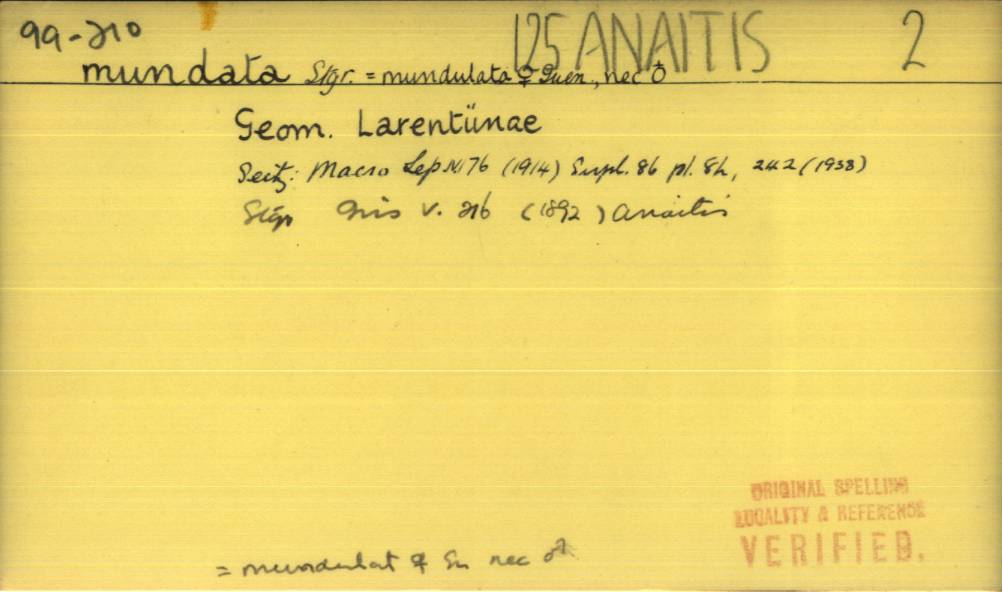 99-210
125 ANAITIS 2
mundata Stgr. = mundulata ♀ Guen., nec ♂
Geom. Larentiinae
Seitz: Macro Lep IV 76 (1914) Suppl. 86 pl. 8h, 242 (1938)
Stgr Iris V. 216 (1892) Anaitis
ORIGINAL SPELLING
LOCALITY & REFERENCE
VERIFIED.
= mundulat ♀ Gn nec ♂